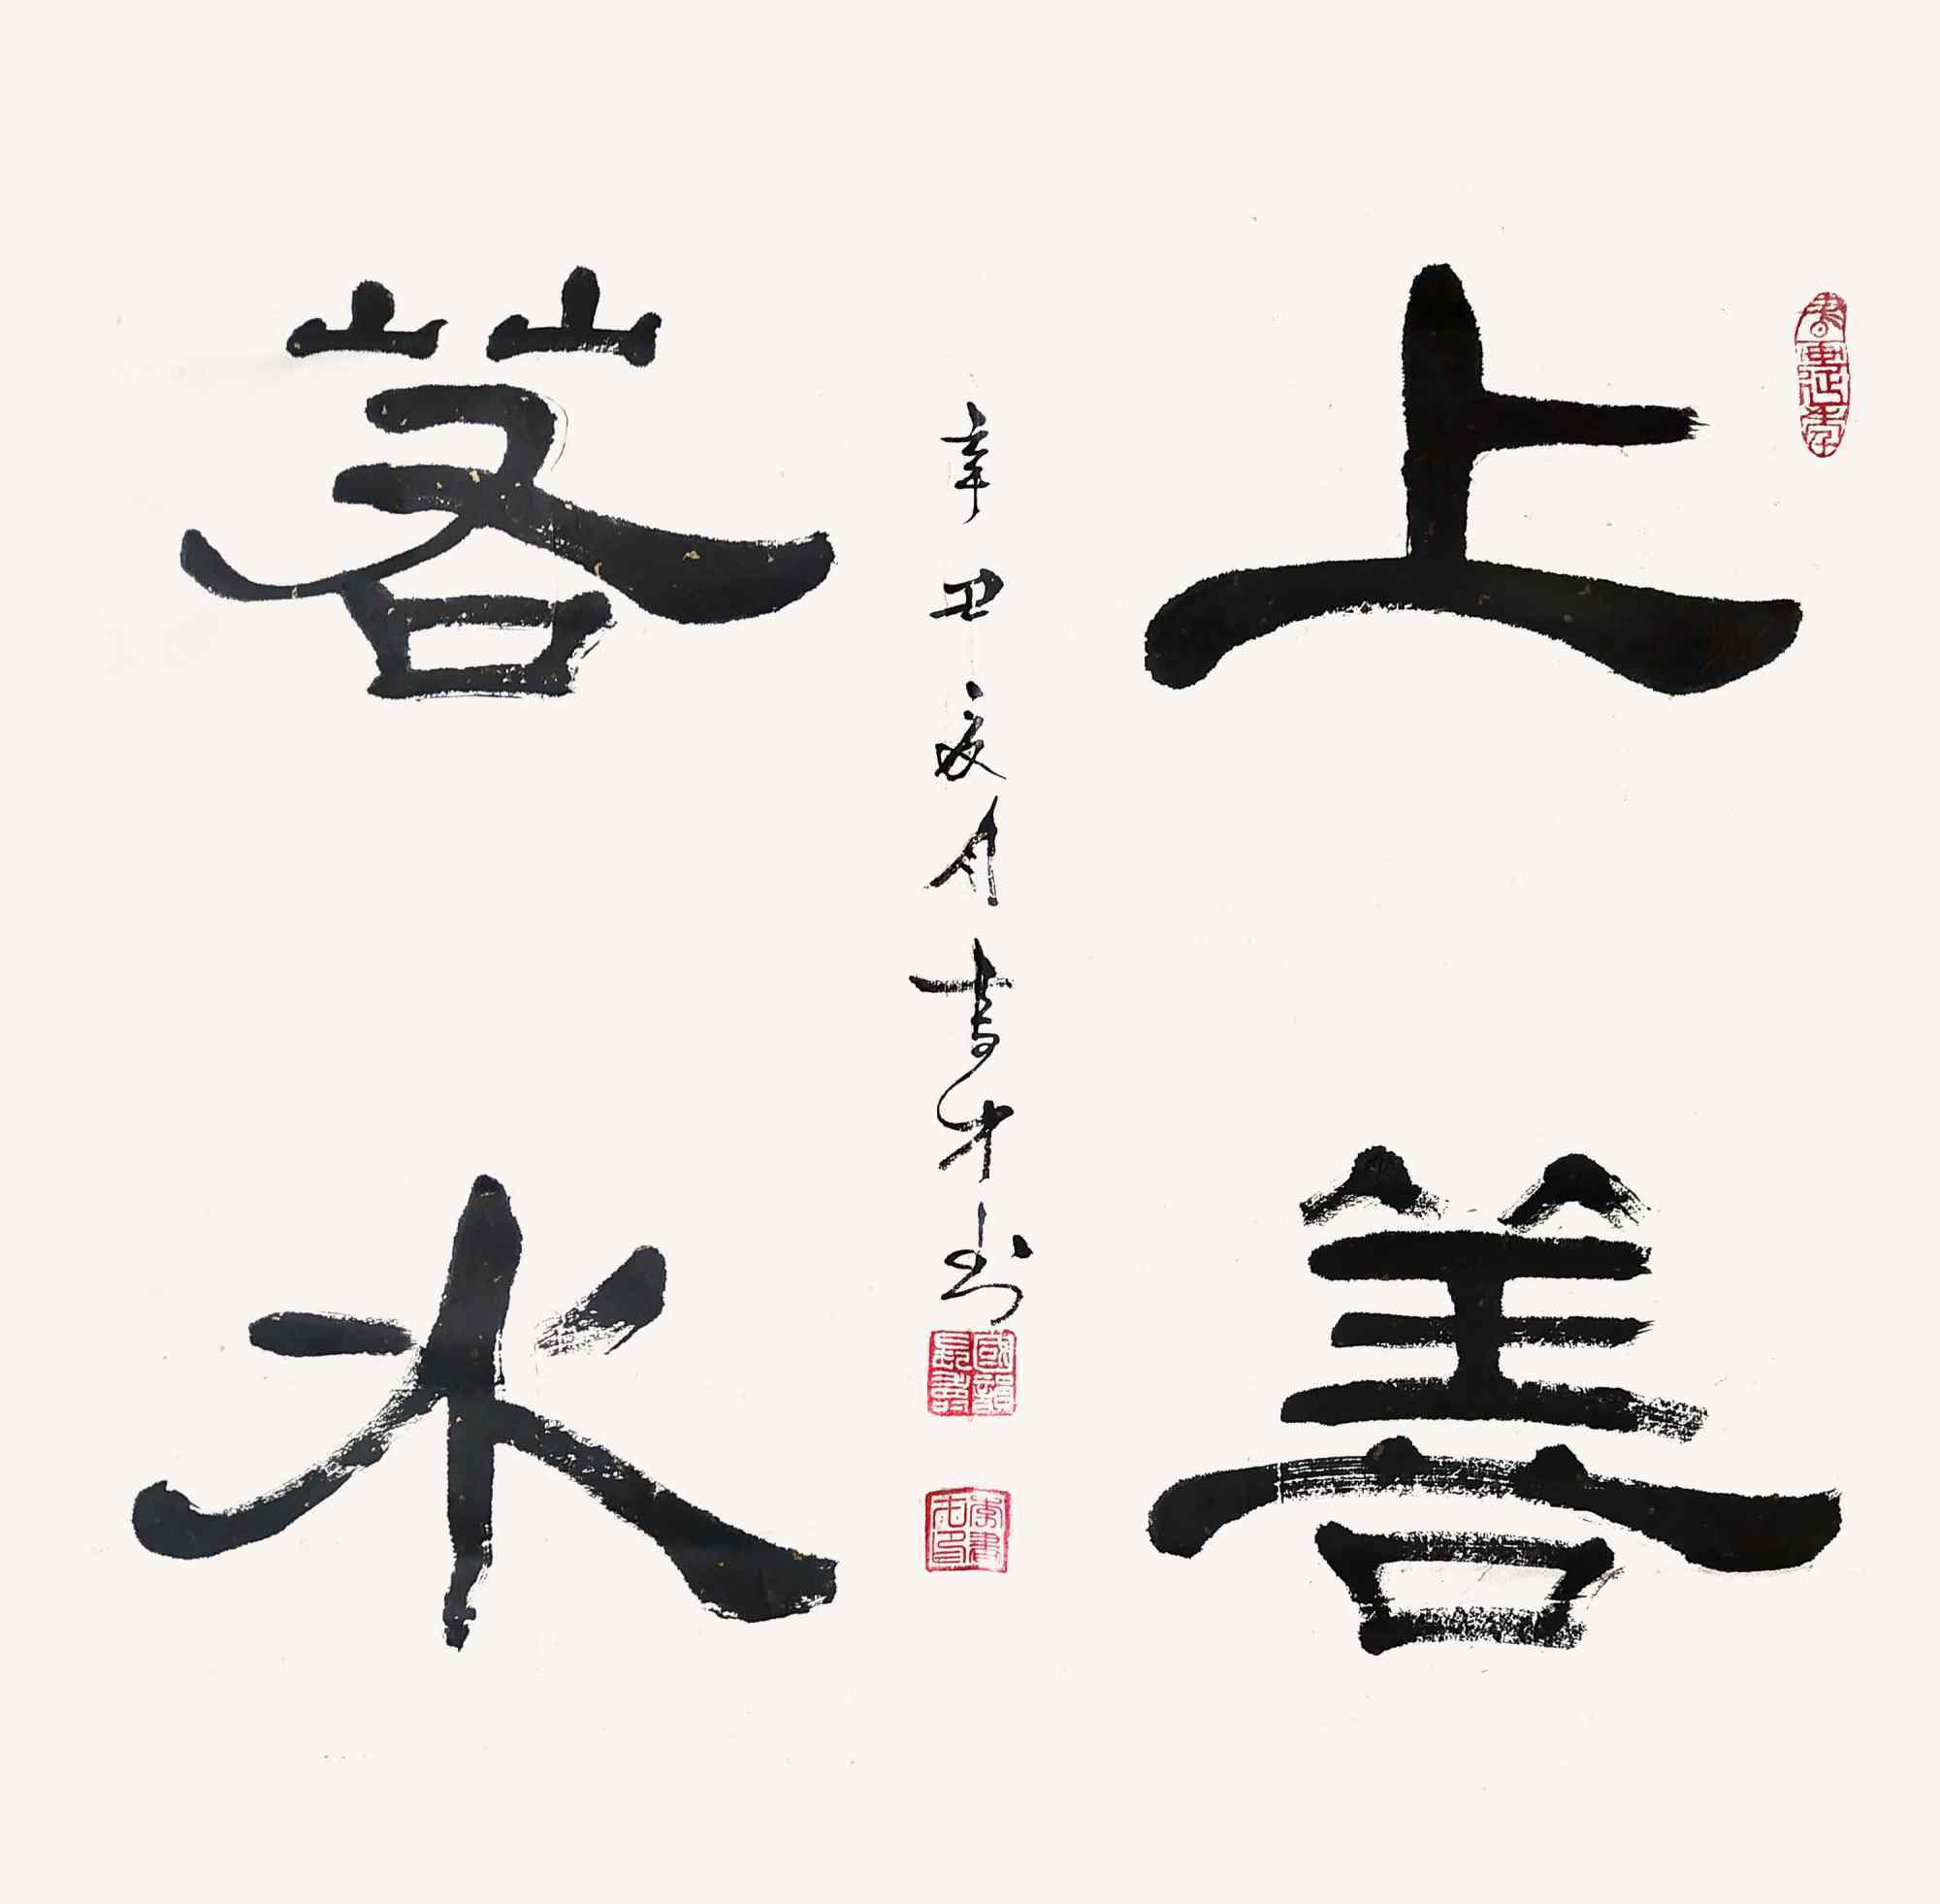 上善
若水
辛丑夏月 才书